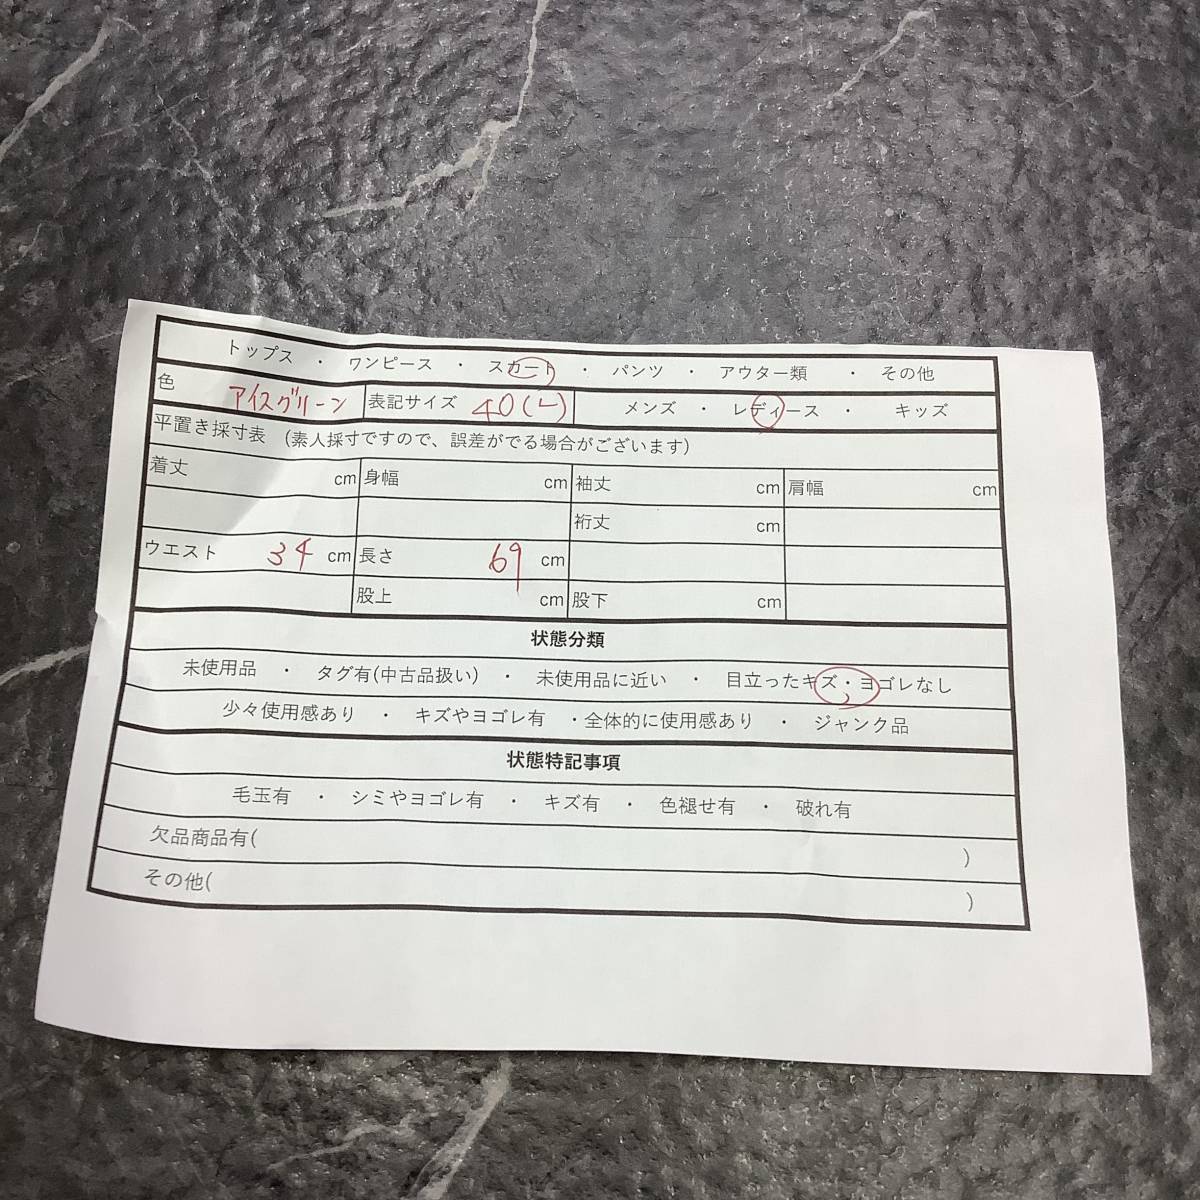 トップス ・ ワンピース ・ スカート ・ パンツ ・ アウター類 ・ その他
色 アイスグリーン 表記サイズ 40(L) メンズ ・ レディース ・ キッズ
平置き採寸表 (素人採寸ですので、誤差がでる場合がございます)
着丈 cm 身幅 cm 袖丈 cm 肩幅 cm
裄丈 cm
ウエスト 34 cm 長さ 69 cm
股上 cm 股下 cm
状態分類
未使用品 ・ タグ有(中古品扱い) ・ 未使用品に近い ・ 目立ったキズ・ヨゴレなし
少々使用感あり ・ キズやヨゴレ有 ・全体的に使用感あり ・ ジャンク品
状態特記事項
毛玉有 ・ シミやヨゴレ有 ・ キズ有 ・ 色褪せ有 ・ 破れ有
欠品商品有( )
その他( )